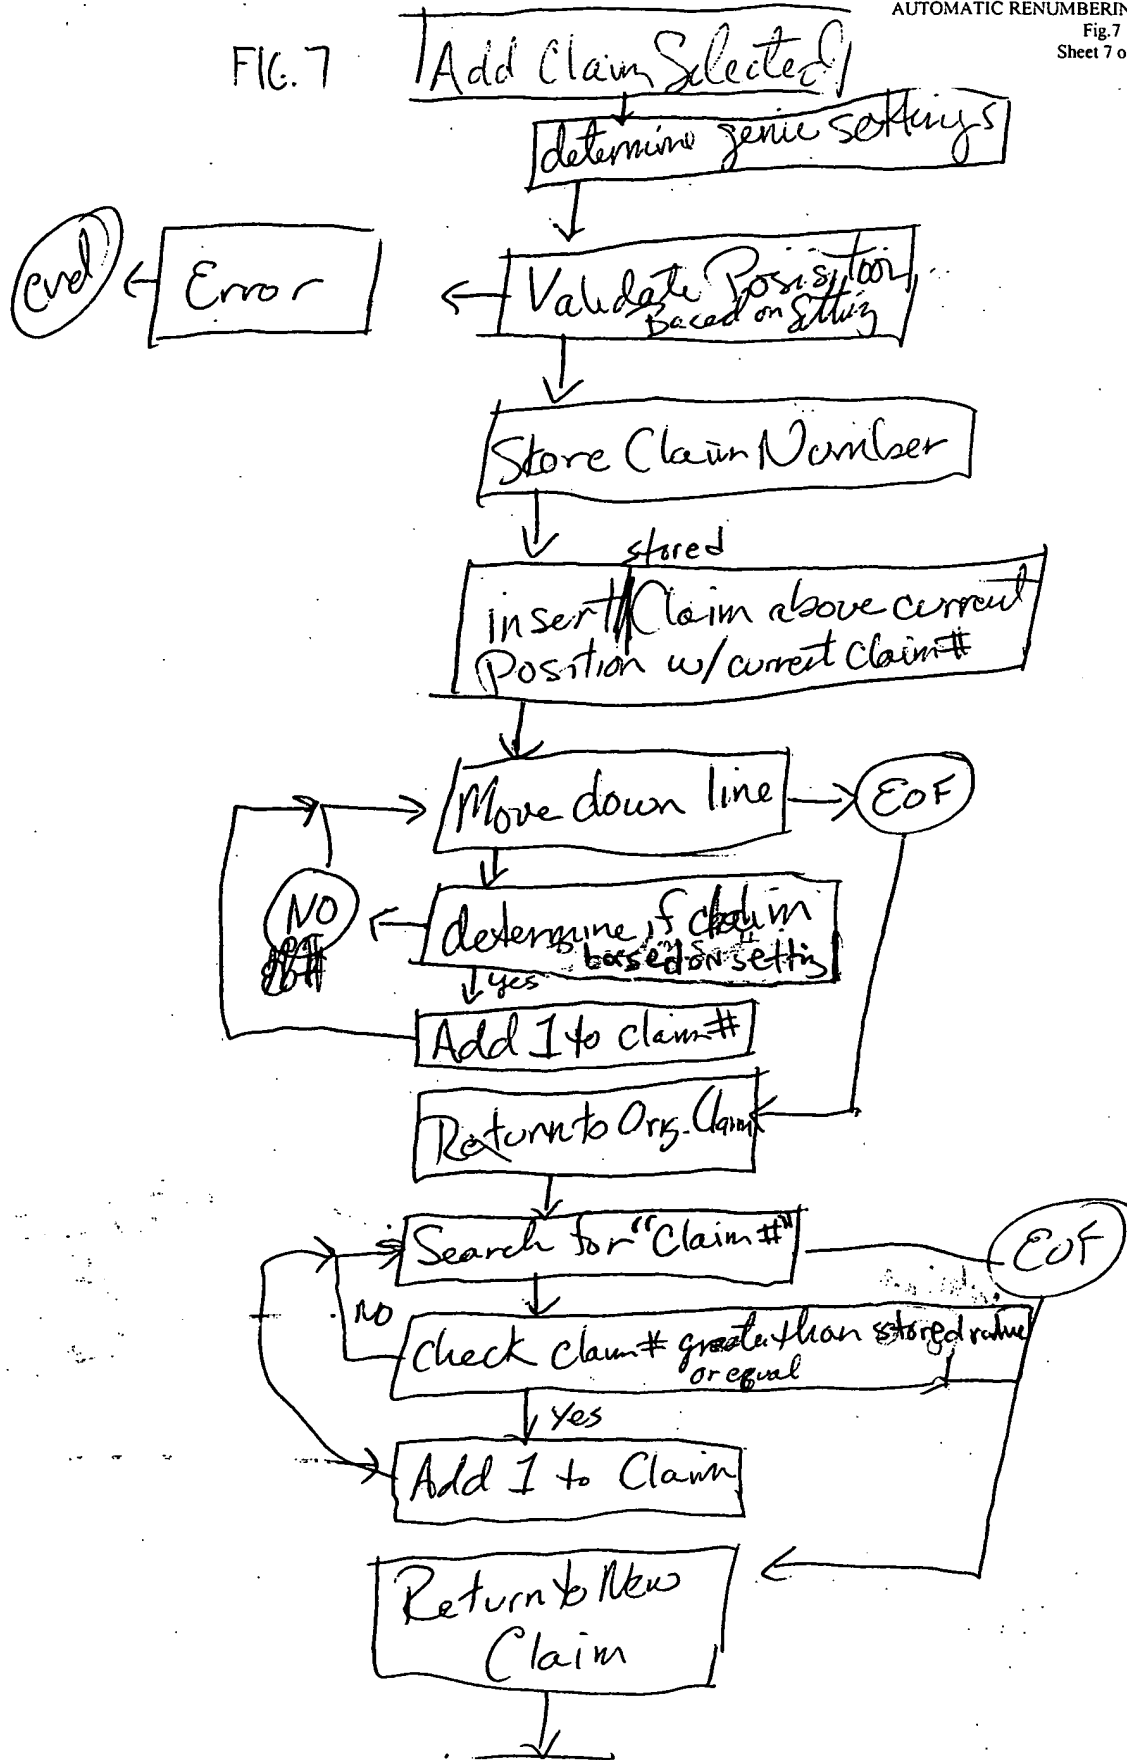 AUTOMATIC RENUMBERIN
Fig.7
Sheet 7 o
FIG. 7
Add Claim Selected
determine genie settings
end
Error
Validate Posisitoon
Based on Setting
Store Claim Number
stored
insert Claim above current
Position w/ current Claim #
Move down line
EOF
NO
determine if claim
based on setting
yes
Add 1 to claim #
Return to Orig. Claim
Search for "Claim #"
EOF
NO
Check claim # greater than stored value
or equal
Yes
Add 1 to Claim
Return to New
Claim